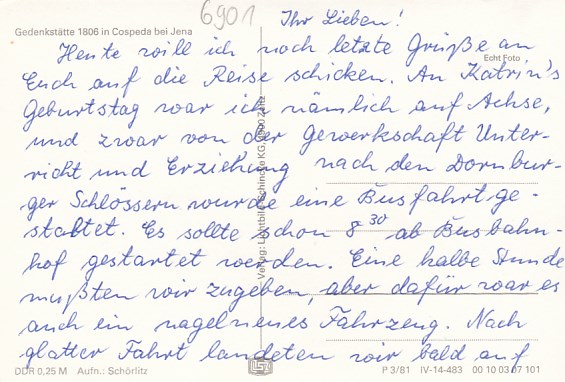 6901
Ihr Lieben!
Gedenkstätte 1806 in Cospeda bei Jena
Heute will ich noch letzte Grüße an
Echt Foto
Euch auf die Reise schicken. An Katrin's
Geburtstag war ich nämlich auf Achse,
und zwar von der Gewerkschaft Unter-
richt und Erziehung nach den Dornbur-
ger Schlössern wurde eine Busfahrt ge-
staltet. Es sollte schon 8 30 ab Busbahn-
hof gestartet werden. Eine halbe Stunde
mußten wir zugeben, aber dafür war es
auch ein nagelneues Fahrzeug. Nach
glatter Fahrt landeten wir bald auf
Verlag: Lichtbild KG,
DDR 0,25 M Aufn.: Schörlitz
P 3/81 IV-14-483 00 10 03 07 101